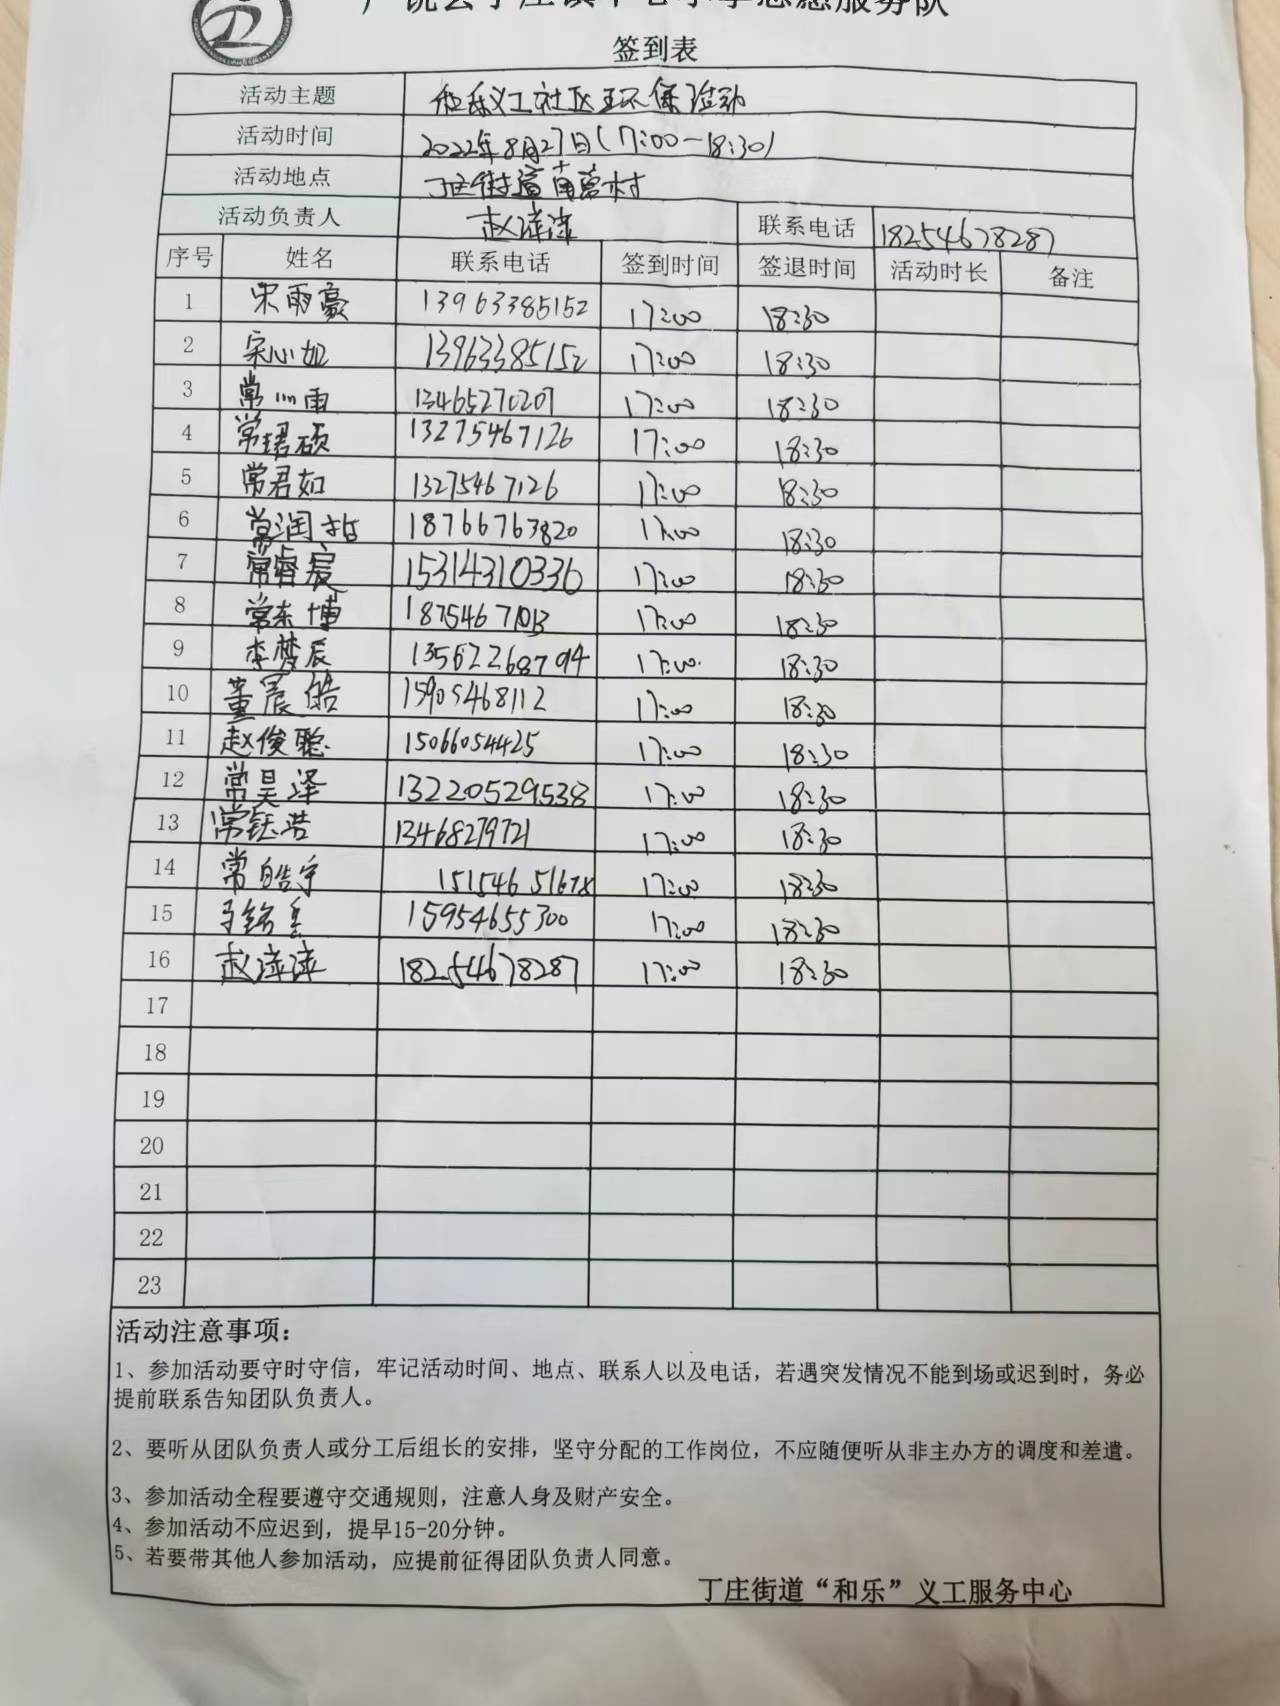 签到表
活动主题 和乐义工社区环保活动
活动时间 2022年8月27日(17:00-18:30)
活动地点 丁庄街道南营村
活动负责人 赵萍萍 联系电话 18254678287
序号 姓名 联系电话 签到时间 签退时间 活动时长 备注
1 宋雨豪 13963385152 17:00 18:30
2 宋心如 13963385152 17:00 18:30
3 常心雨 13465270207 17:00 18:30
4 常珺硕 13275467126 17:00 18:30
5 常君如 13275467126 17:00 18:30
6 常润哲 18766763820 17:00 18:30
7 常睿宸 15314310336 17:00 18:30
8 常东博 17:00 18:30
9 李梦辰 13562268794 17:00 18:30
10 董晨皓 15905468112 17:00 18:30
11 赵俊聪 15066054425 17:00 18:30
12 常昊泽 13220529538 17:00 18:30
13 常钰浩 13468279721 17:00 18:30
14 常皓宇 15154651678 17:00 18:30
15 15954655300 17:00 18:30
16 赵萍萍 18254678287 17:00 18:30
17
18
19
20
21
22
23
活动注意事项：
1、参加活动要守时守信，牢记活动时间、地点、联系人以及电话，若遇突发情况不能到场或迟到时，务必
提前联系告知团队负责人。
2、要听从团队负责人或分工后组长的安排，坚守分配的工作岗位，不应随便听从非主办方的调度和差遣。
3、参加活动全程要遵守交通规则，注意人身及财产安全。
4、参加活动不应迟到，提早15-20分钟。
5、若要带其他人参加活动，应提前征得团队负责人同意。
丁庄街道“和乐”义工服务中心